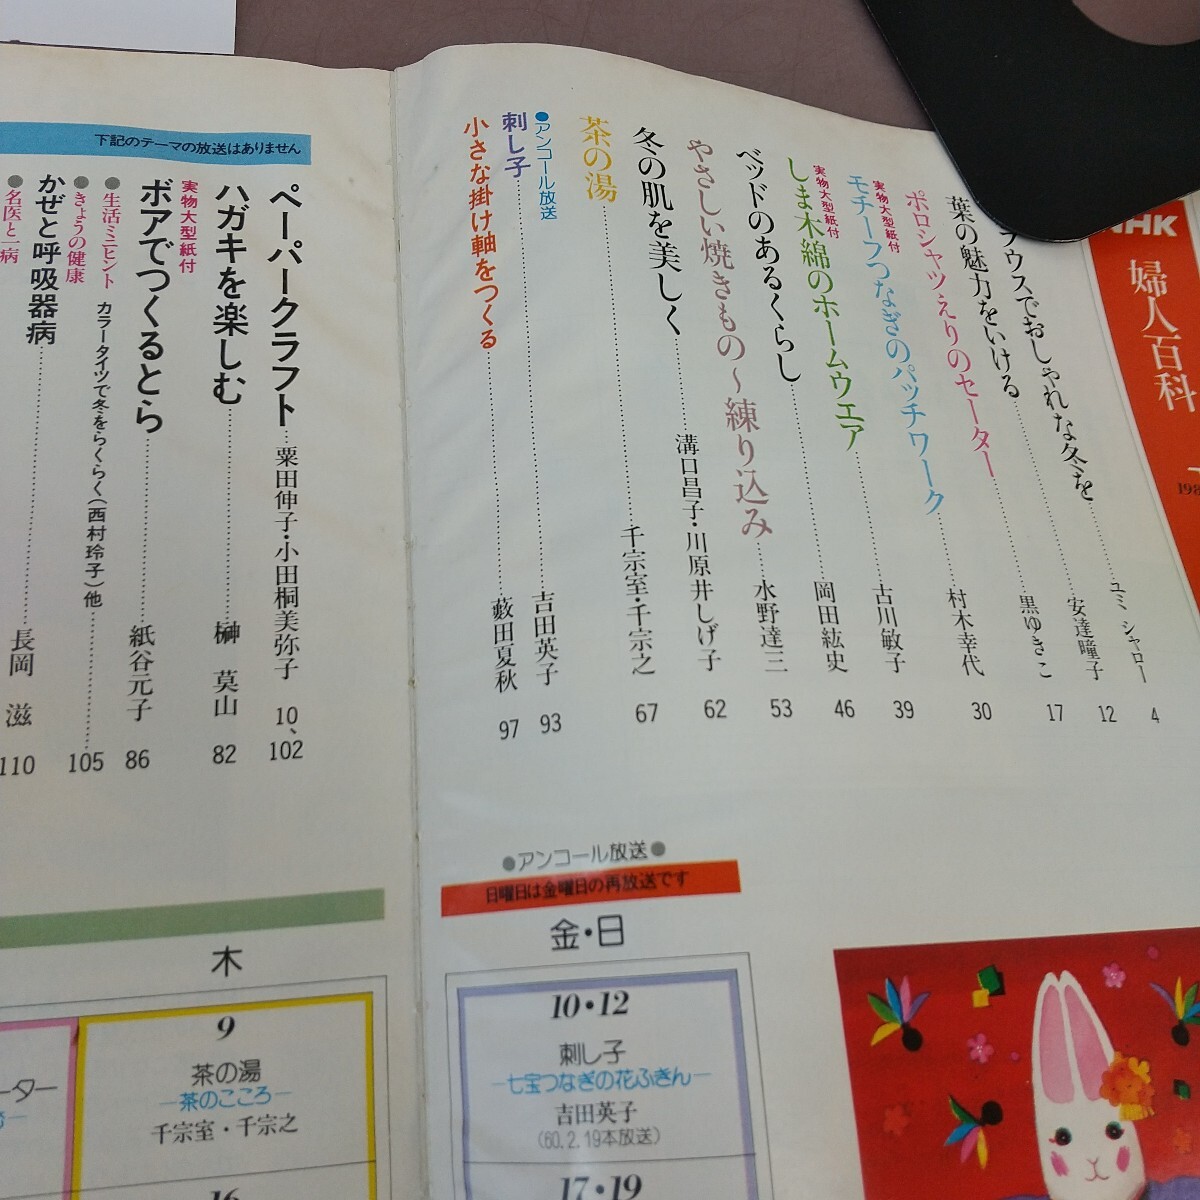 NHK
婦人百科
ラウスでおしゃれな冬を
ユミ シャロー
4
葉の魅力をいける
安達瞳子
12
ポロシャツえりのセーター
黒ゆきこ
17
実物大型紙付
モチーフつなぎのパッチワーク
村木幸代
30
実物大型紙付
しま木綿のホームウエア
古川敏子
39
ベッドのあるくらし
岡田紘史
46
やさしい焼きもの〜練り込み
水野達三
53
冬の肌を美しく
溝口昌子・川原井しげ子
62
茶の湯
千宗室・千宗之
67
●アンコール放送
刺し子
吉田英子
93
小さな掛け軸をつくる
藪田夏秋
97
下記のテーマの放送はありません
ペーパークラフト
粟田伸子・小田桐美弥子
10、102
ハガキを楽しむ
榊 莫山
82
実物大型紙付
ボアでつくるとら
紙谷元子
86
●生活ミニヒント
カラータイツで冬をらくらく(西村玲子)他
105
●きょうの健康
かぜと呼吸器病
長岡 滋
110
●名医と一病
●アンコール放送●
日曜日は金曜日の再放送です
金・日
10・12
刺し子
―七宝つなぎの花ふきん―
吉田英子
(60.2.19本放送)
17・19
木
9
茶の湯
―茶のこころ―
千宗室・千宗之
16
ーター